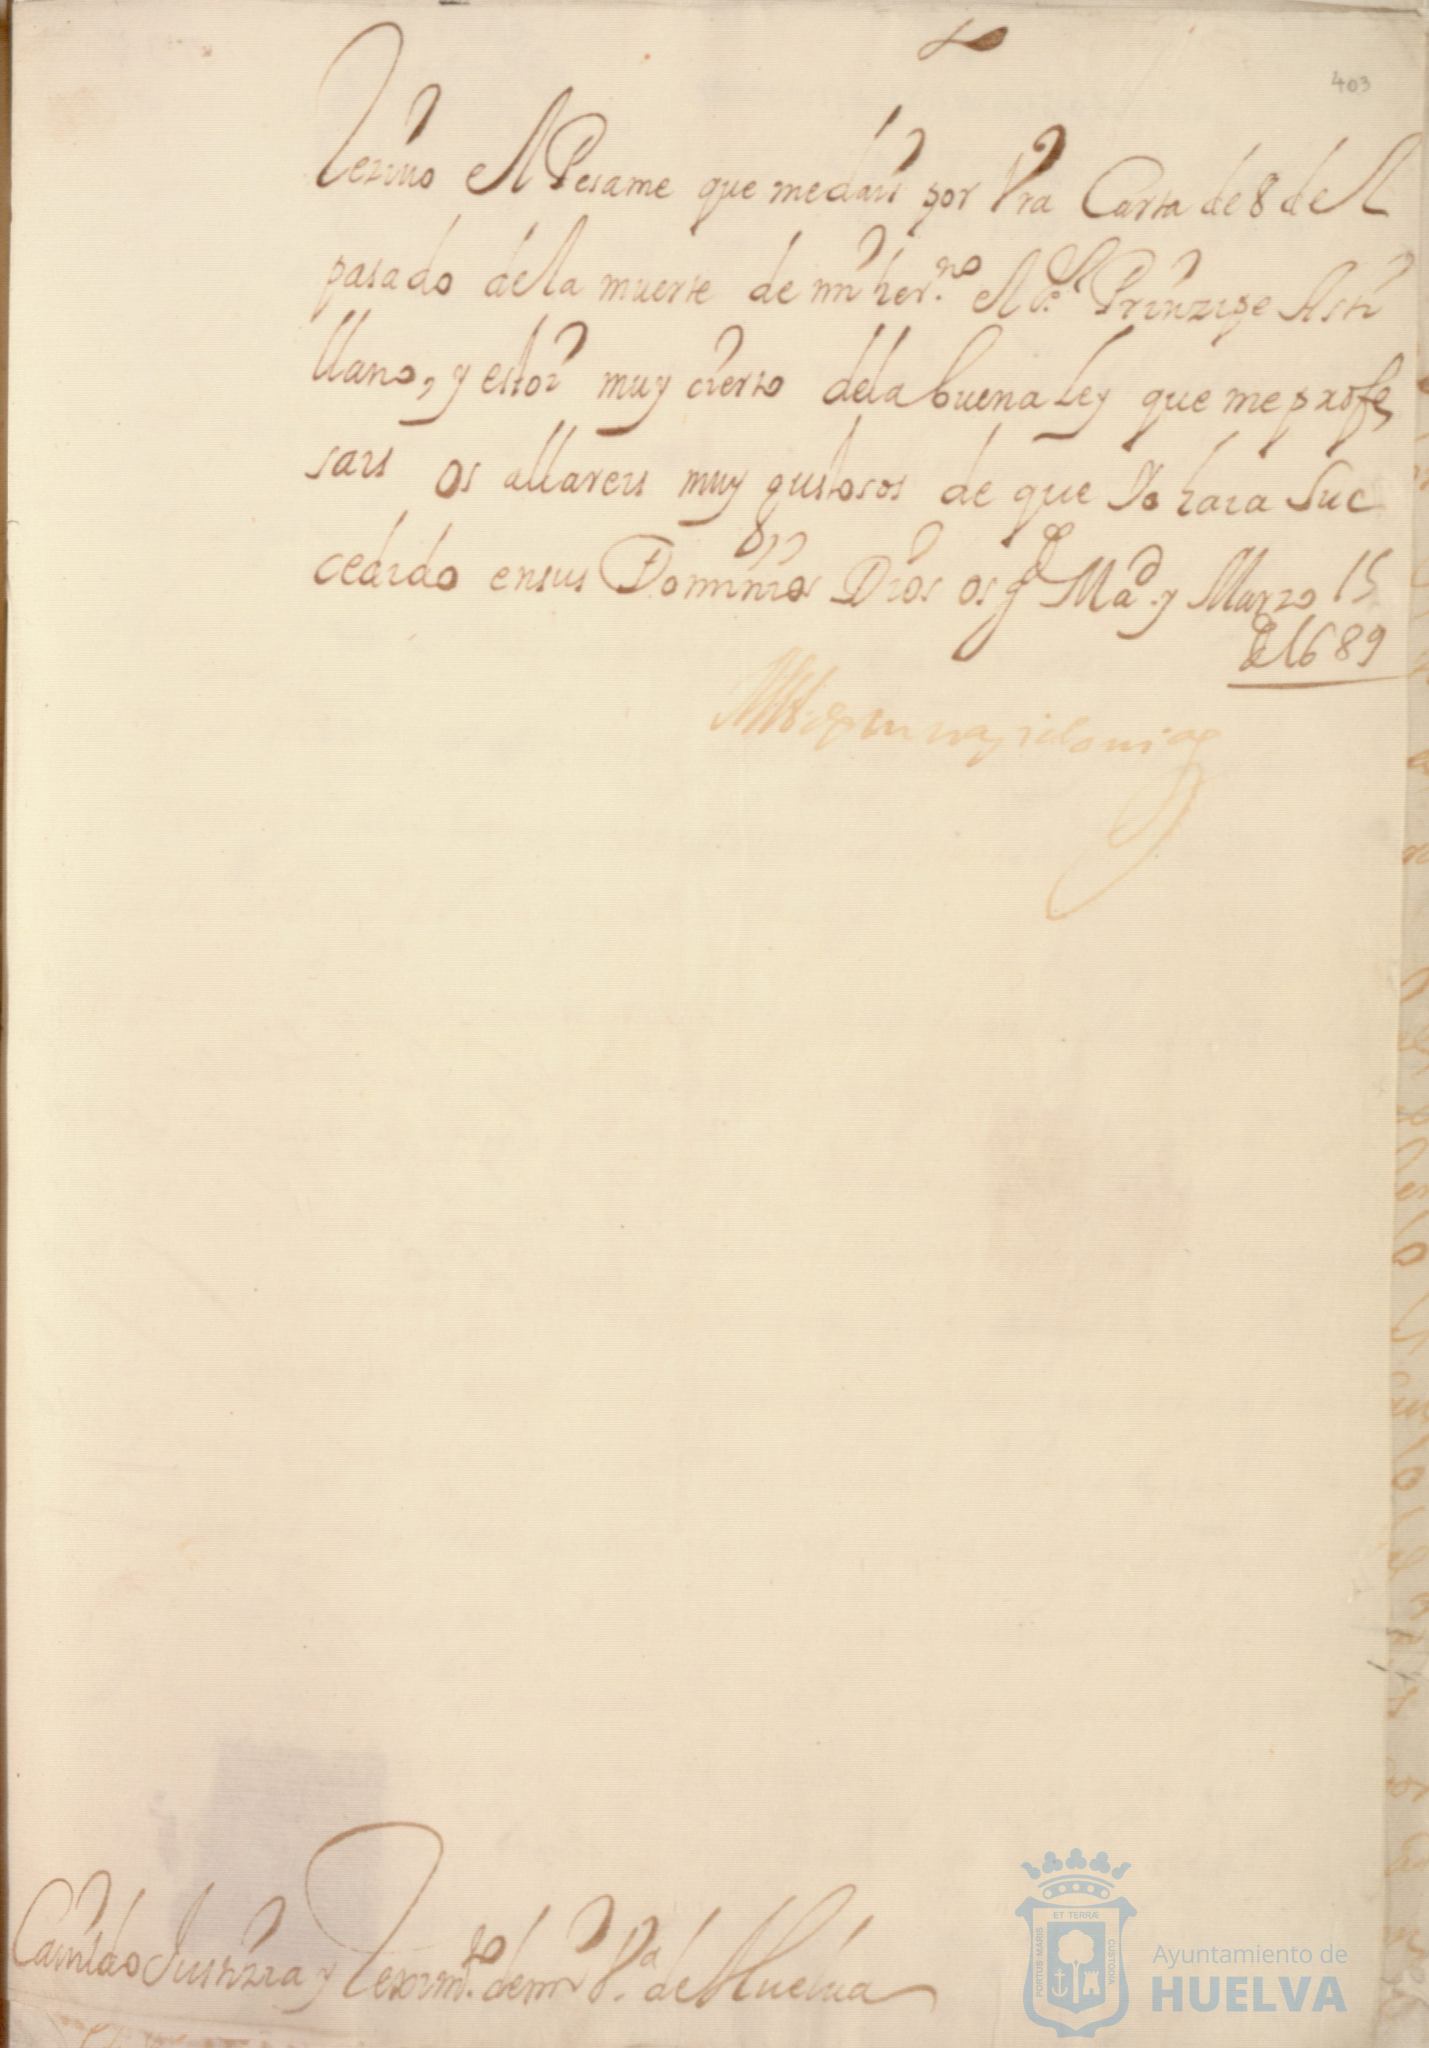 403
Reziuo el Pesame que medais por Vra Carta de 8 del
pasado dela muerte de mi her.no el Prinzipe Asti
llano, y estoi muy cierto dela buena Ley que me profe
sais os allareis muy gustosos de que Yo haia Suc
cedido ensus Dominios Dios os g.e Mad.d y Marzo 15
de 1689
Cauildo Justizia y Reximt.o demi V.a de Huelua
PORTUS MARIS
ET TERRÆ
CUSTODIA
Ayuntamiento de
HUELVA